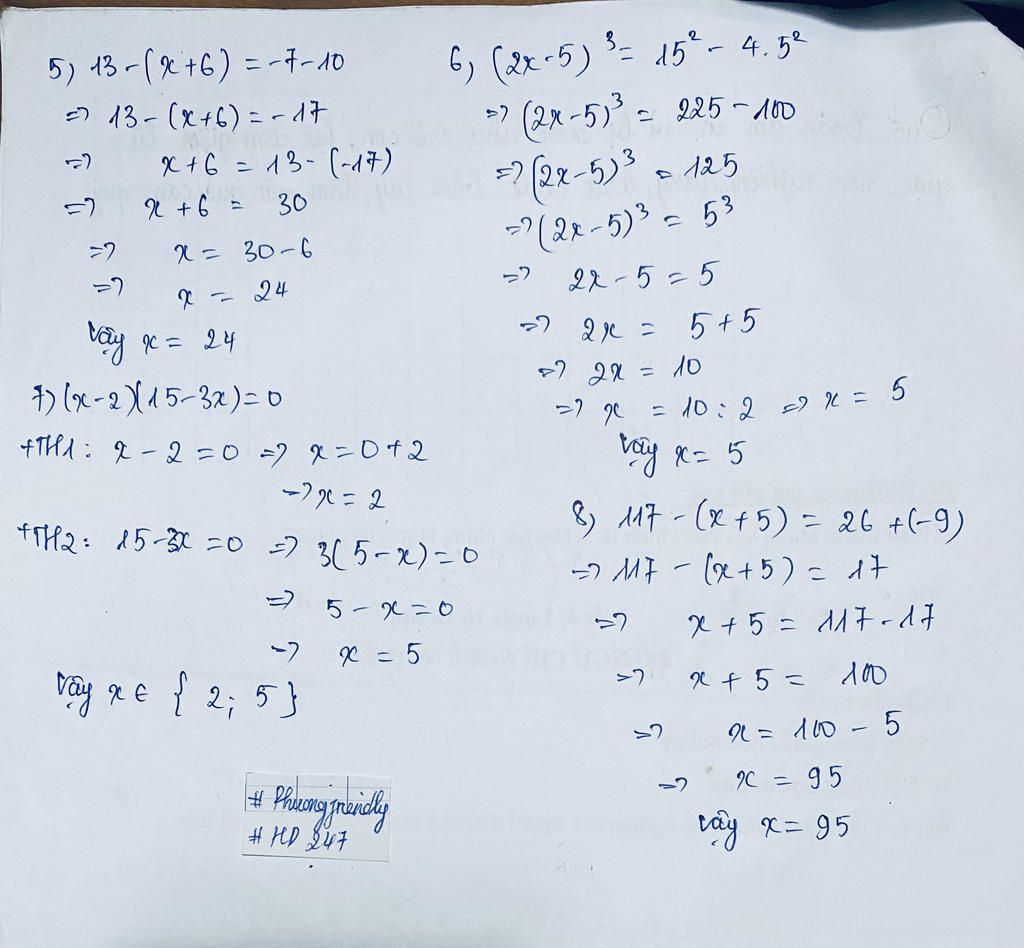 5) 13-(x+6) = -7-10
=> 13-(x+6) = -17
=> x+6 = 13-(-17)
=> x+6 = 30
=> x = 30-6
=> x = 24
Vậy x = 24
7) (x-2)(15-3x)=0
+TH1: x-2=0 => x=0+2
=> x=2
+TH2: 15-3x=0 => 3(5-x)=0
=> 5-x=0
=> x=5
Vậy x ∈ { 2; 5 }
# Phuongfriendly
# HD 247
6) (2x-5)³ = 15² - 4.5²
=> (2x-5)³ = 225-100
=> (2x-5)³ = 125
=> (2x-5)³ = 5³
=> 2x-5 = 5
=> 2x = 5+5
=> 2x = 10
=> x = 10:2 => x = 5
Vậy x = 5
8) 117-(x+5) = 26+(-9)
=> 117-(x+5) = 17
=> x+5 = 117-17
=> x+5 = 100
=> x = 100-5
=> x = 95
Vậy x = 95